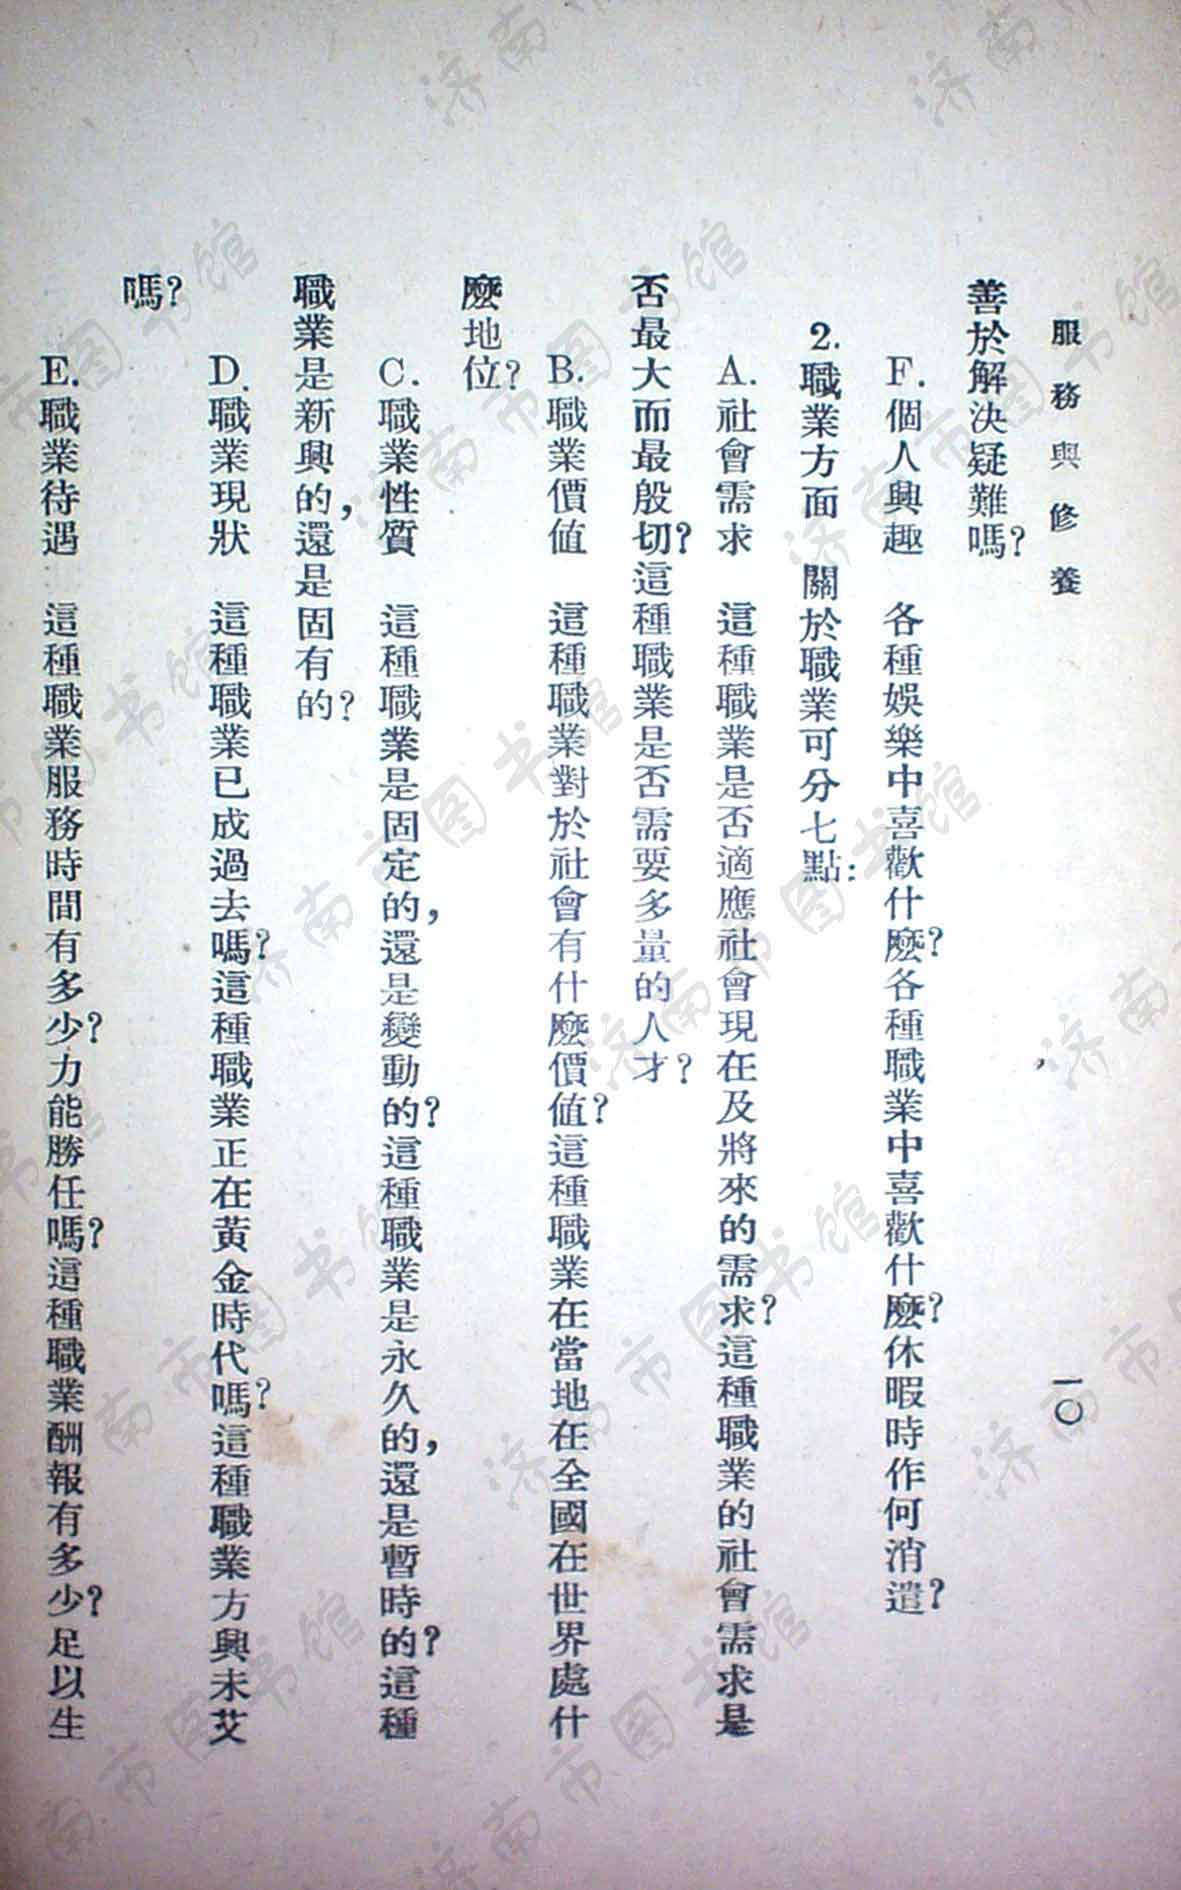 服務與修養
一〇
善於解決疑難嗎?
F. 個人興趣 各種娛樂中喜歡什麼?各種職業中喜歡什麼?休暇時作何消遣?
2. 職業方面 關於職業可分七點:
A. 社會需求 這種職業是否適應社會現在及將來的需求?這種職業的社會需求是
否最大而最殷切?這種職業是否需要多量的人才?
B. 職業價值 這種職業對於社會有什麼價值?這種職業在當地在全國在世界處什
麼地位?
C. 職業性質 這種職業是固定的,還是變動的?這種職業是永久的,還是暫時的?這種
職業是新興的,還是固有的?
D. 職業現狀 這種職業已成過去嗎?這種職業正在黃金時代嗎?這種職業方興未艾
嗎?
E. 職業待遇 這種職業服務時間有多少?力能勝任嗎?這種職業酬報有多少?足以生
济南市图书馆